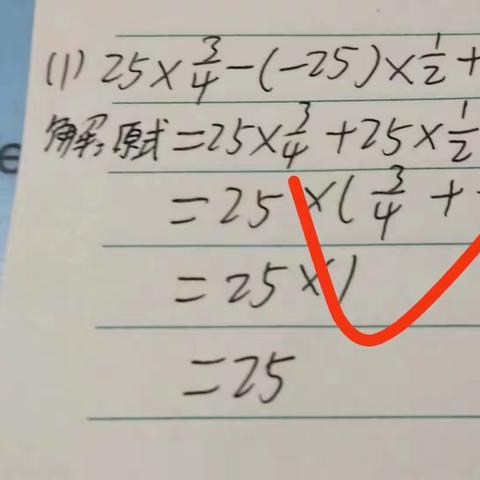 (1) 25×3/4-(-25)×1/2+
解:原式=25×3/4+25×1/2
=25×(3/4+
=25×1
=25
e